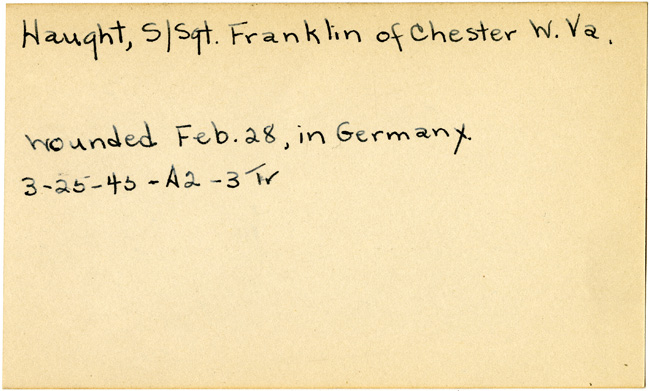 Haught, S/Sgt. Franklin of Chester W. Va.
wounded Feb. 28, in Germany.
3-25-45 - A2 - 3 Tr